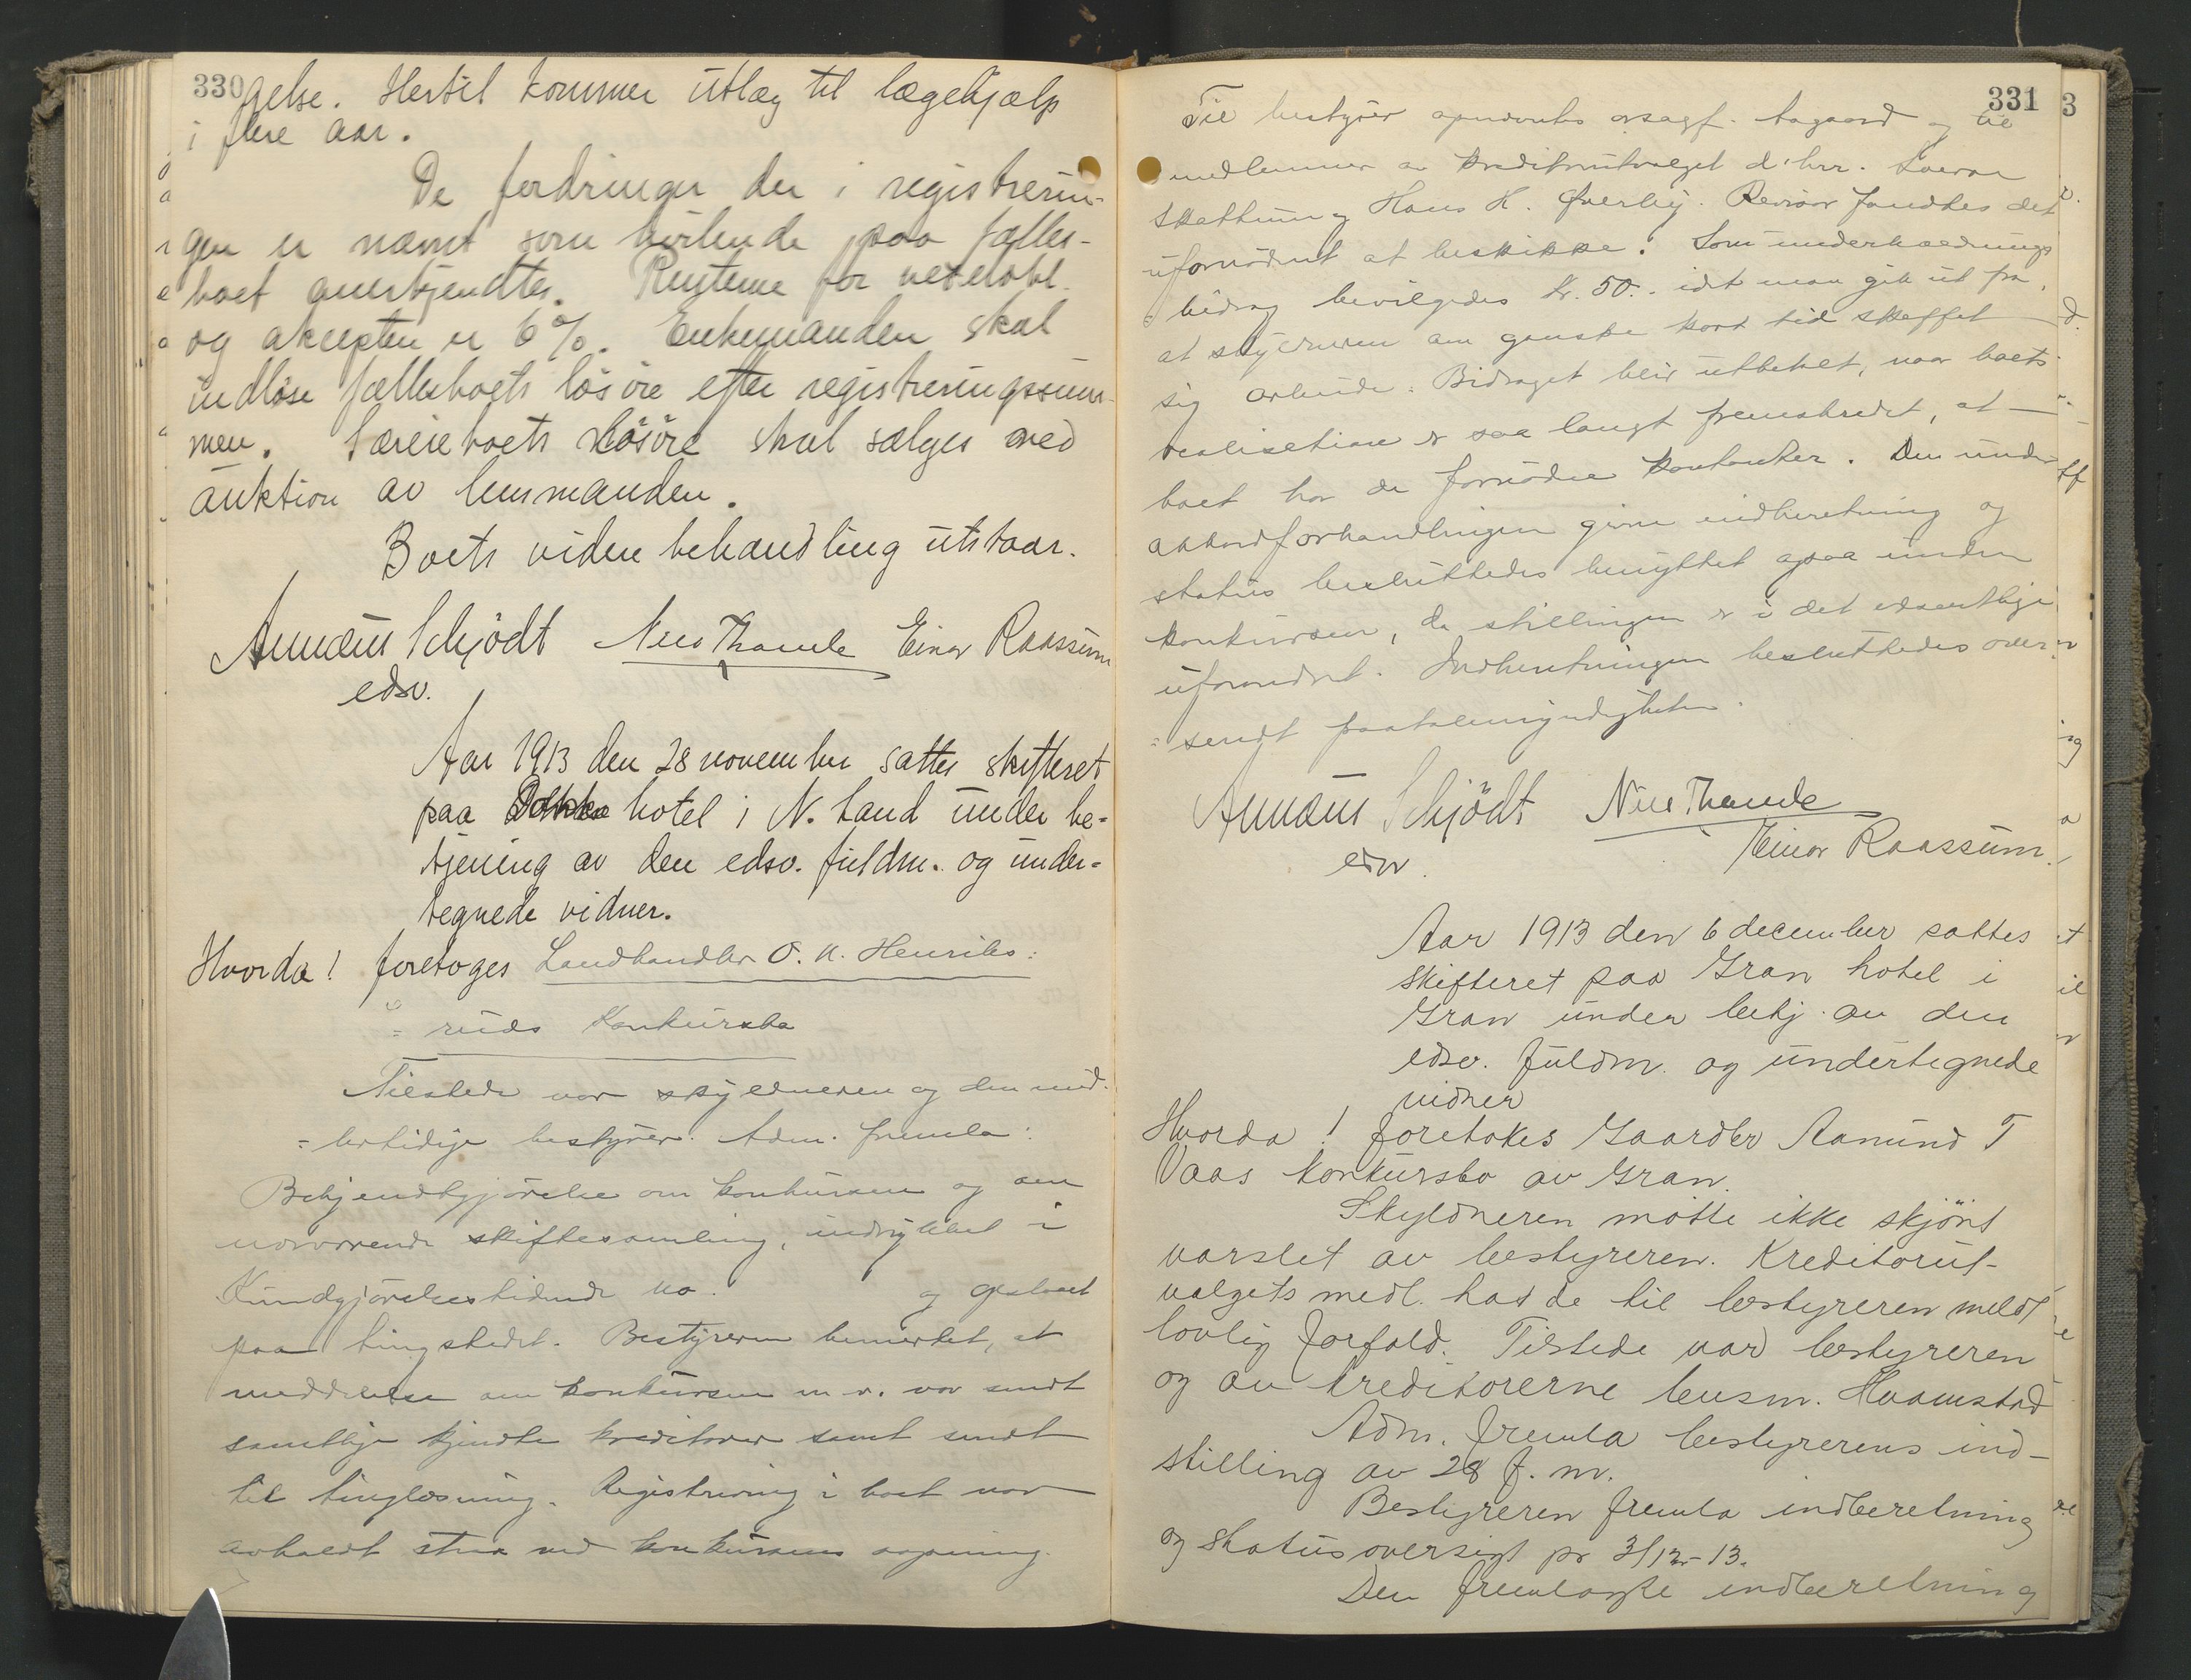 330
gelse. Hertil kommer utlæg til lægehjælp
i flere aar.
De fordringer der i registrerin-
gen er nævnt som hvilende paa fælles-
boet anerkjendtes. Renterne for vekselobl.
og aksepten er 6%. Enkemanden skal
indløse fællesboets løsøre efter registreringssum-
men. Særeieboets løsøre skal sælges ved
auktion av lensmanden.
Boets videre behandling utstaar.
Amæus Schjödt Nils Thomle Einar Raassum
edsv.
Aar 1913 den 28 november sattes skifteret
paa Dokka hotel i N. Land under be-
tjening av den edsv. fuldm. og under-
tegnede vidner.
Hvorda! foretoges Landhandler O. A. Henriks:
=ruds Konkursbo
Tilstede var skyldneren og den mid-
=lertidige bestyrer. Adm. fremla:
Bekjendtgjørelse om konkursen og om
nærværende skiftesamling, indrykket i
Kundgjørelsestidende no. og opslaaet
paa tingstedet. Bestyreren bemerket, at
meddelelse om konkursen m.v. var sendt
samtlige kjendte kreditorer samt sendt
til tinglæsning. Registrering i boet var
avholdt strax ved konkursens aapning.
331
Til bestyrer opnævntes o.sagf. Aagaard og til
medlemmer av kreditorutvalget d'hrr.
Skattum og Hans H. Øverby. Revisor fandtes det
ufornødent at beskikke. Som underholdnings
bidrag bevilgedes kr. 50.- idet man gik ut fra,
at skyldneren om ganske kort tid skaffet
sig arbeide. Bidraget blir utbetalt, naar boets
realisation er saa langt fremskredet, at
boet har de fornødne kontanter. Den under
akkordforhandlingen givne indberetning og
status besluttedes benyttet ogsaa under
konkursen, da stillingen er i det væsentlige
uforandret. Indberetningen besluttedes over
=sendt paatalemyndigheten.
Amæus Schjödt Nils Thomle
edsv. Einar Raassum.
Aar 1913 den 6 december sattes
skifteret paa Gran hotel i
Gran under betj. av den
edsv. fuldm. og undertegnede
vidner
Hvorda! foretokes Gaardbr Aamund T
Vaas konkursbo av Gran.
Skyldneren møtte ikke skjønt
varslet av bestyreren. Kreditorut-
valgets medl. hadde til bestyreren meldt
lovlig forfald. Tilstede var bestyreren
og av kreditorerne lensm. Hvamstad
Adm. fremla bestyrerens ind-
stilling av 28 f. m.
Bestyreren fremla indberetning
og statusoversigt pr 3/12-13.
Den fremlagte indberetning